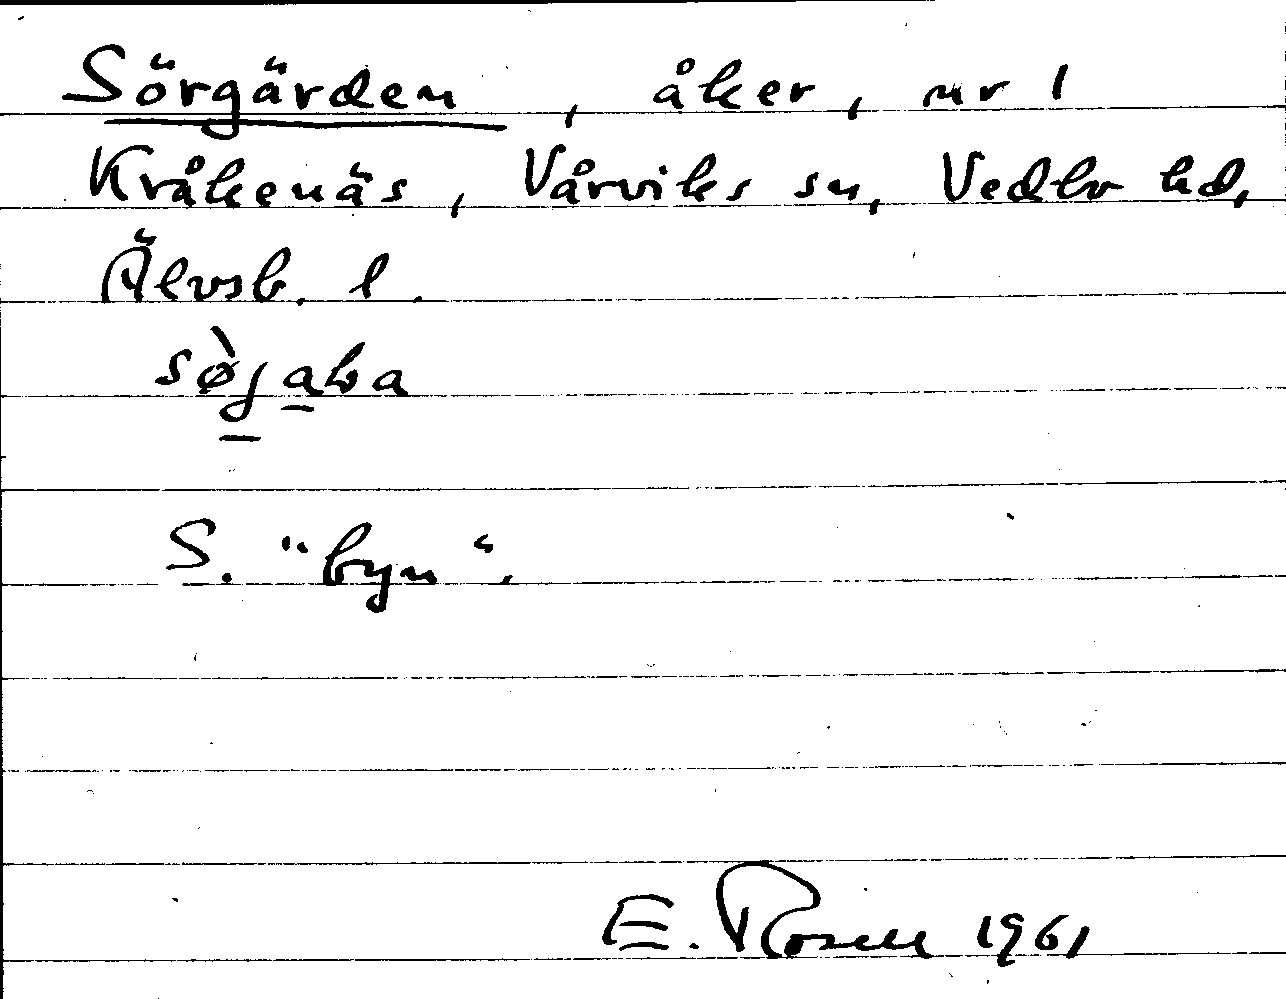 Sörgärden, åker, nr 1
Kråkenäs, Vårviks sn, Vedbo hd,
Älvsb. l.
S. "byn".
E. Rosell 1961